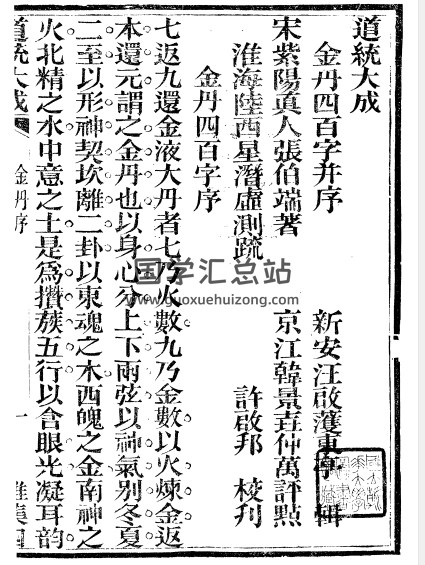 道統大成
金丹四百字并序 新安汪啟濩東亭 輯
宋紫陽眞人張伯端著 京江韓景垚仲萬評點
淮海陸西星潛虛測疏 許啟邦 校刋
金丹四百字序
七返九還金液大丹者七乃火數九乃金數以火煉金返
本還元謂之金丹也以身心分上下兩弦以神氣別冬夏
二至以形神契坎離二卦以東魂之木西魄之金南神之
火北精之水中意之土是爲攢簇五行以含眼光凝耳韵
道統大成 金丹序 一
国学汇总站
www.guoxuehuizong.com